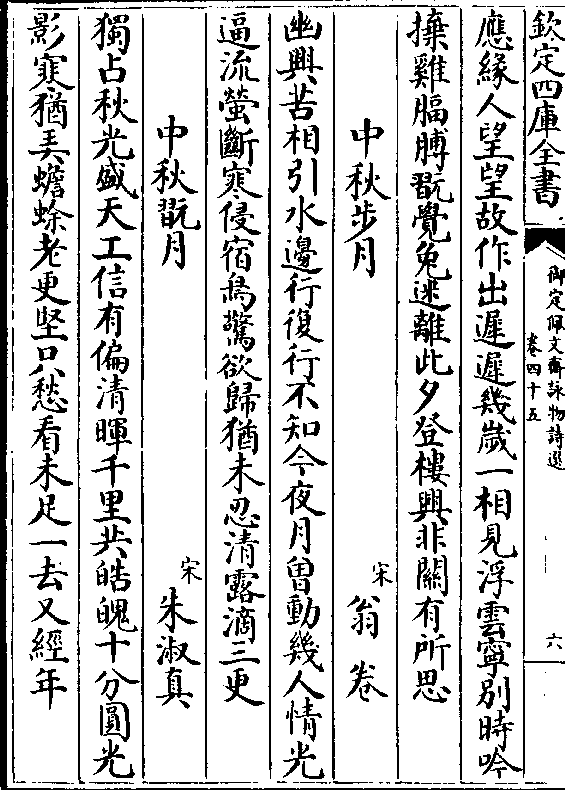 欽定四庫全書
御定佩文齋詠物詩選
卷四十五
六
應緣人望望故作出遲遲幾歲一相見浮雲寧別時吟
雞腷膊翫覺兔迷離此夕登樓興非關有所思
中秋步月
宋
翁卷
幽興苦相引水邊行復行不知今夜月曾動幾人情光
逼流螢斷寒侵宿鳥驚欲歸猶未忍清露滴三更
中秋翫月
宋
朱淑真
獨占秋光盛天工信有偏清暉千里共皓魄十分圓光
影寒猶弄蟾蜍老更堅只愁看未足一去又經年